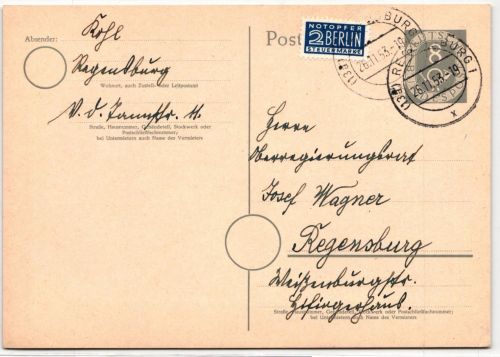 Absender:
Kohl
Regensburg
Wohnort, auch Zustell- oder Leitpostamt
V. d.
Straße, Hausnummer, Gebäudeteil, Stockwerk oder
Postschließfachnummer;
bei Untermietern auch Name des Vermieters
Post
NOTOPFER
2 BERLIN
STEUERMARKE
26.11.53.-19
(13b) REGENSBURG 1
26.11.53.-19
x
8
Herrn
Oberregierungsrat
Josef Wagner
Regensburg
Weißenburgstr.
Straße, Hausnummer, Gebäudeteil, Stockwerk oder Postschließfachnummer;
bei Untermietern auch Name des Vermieters